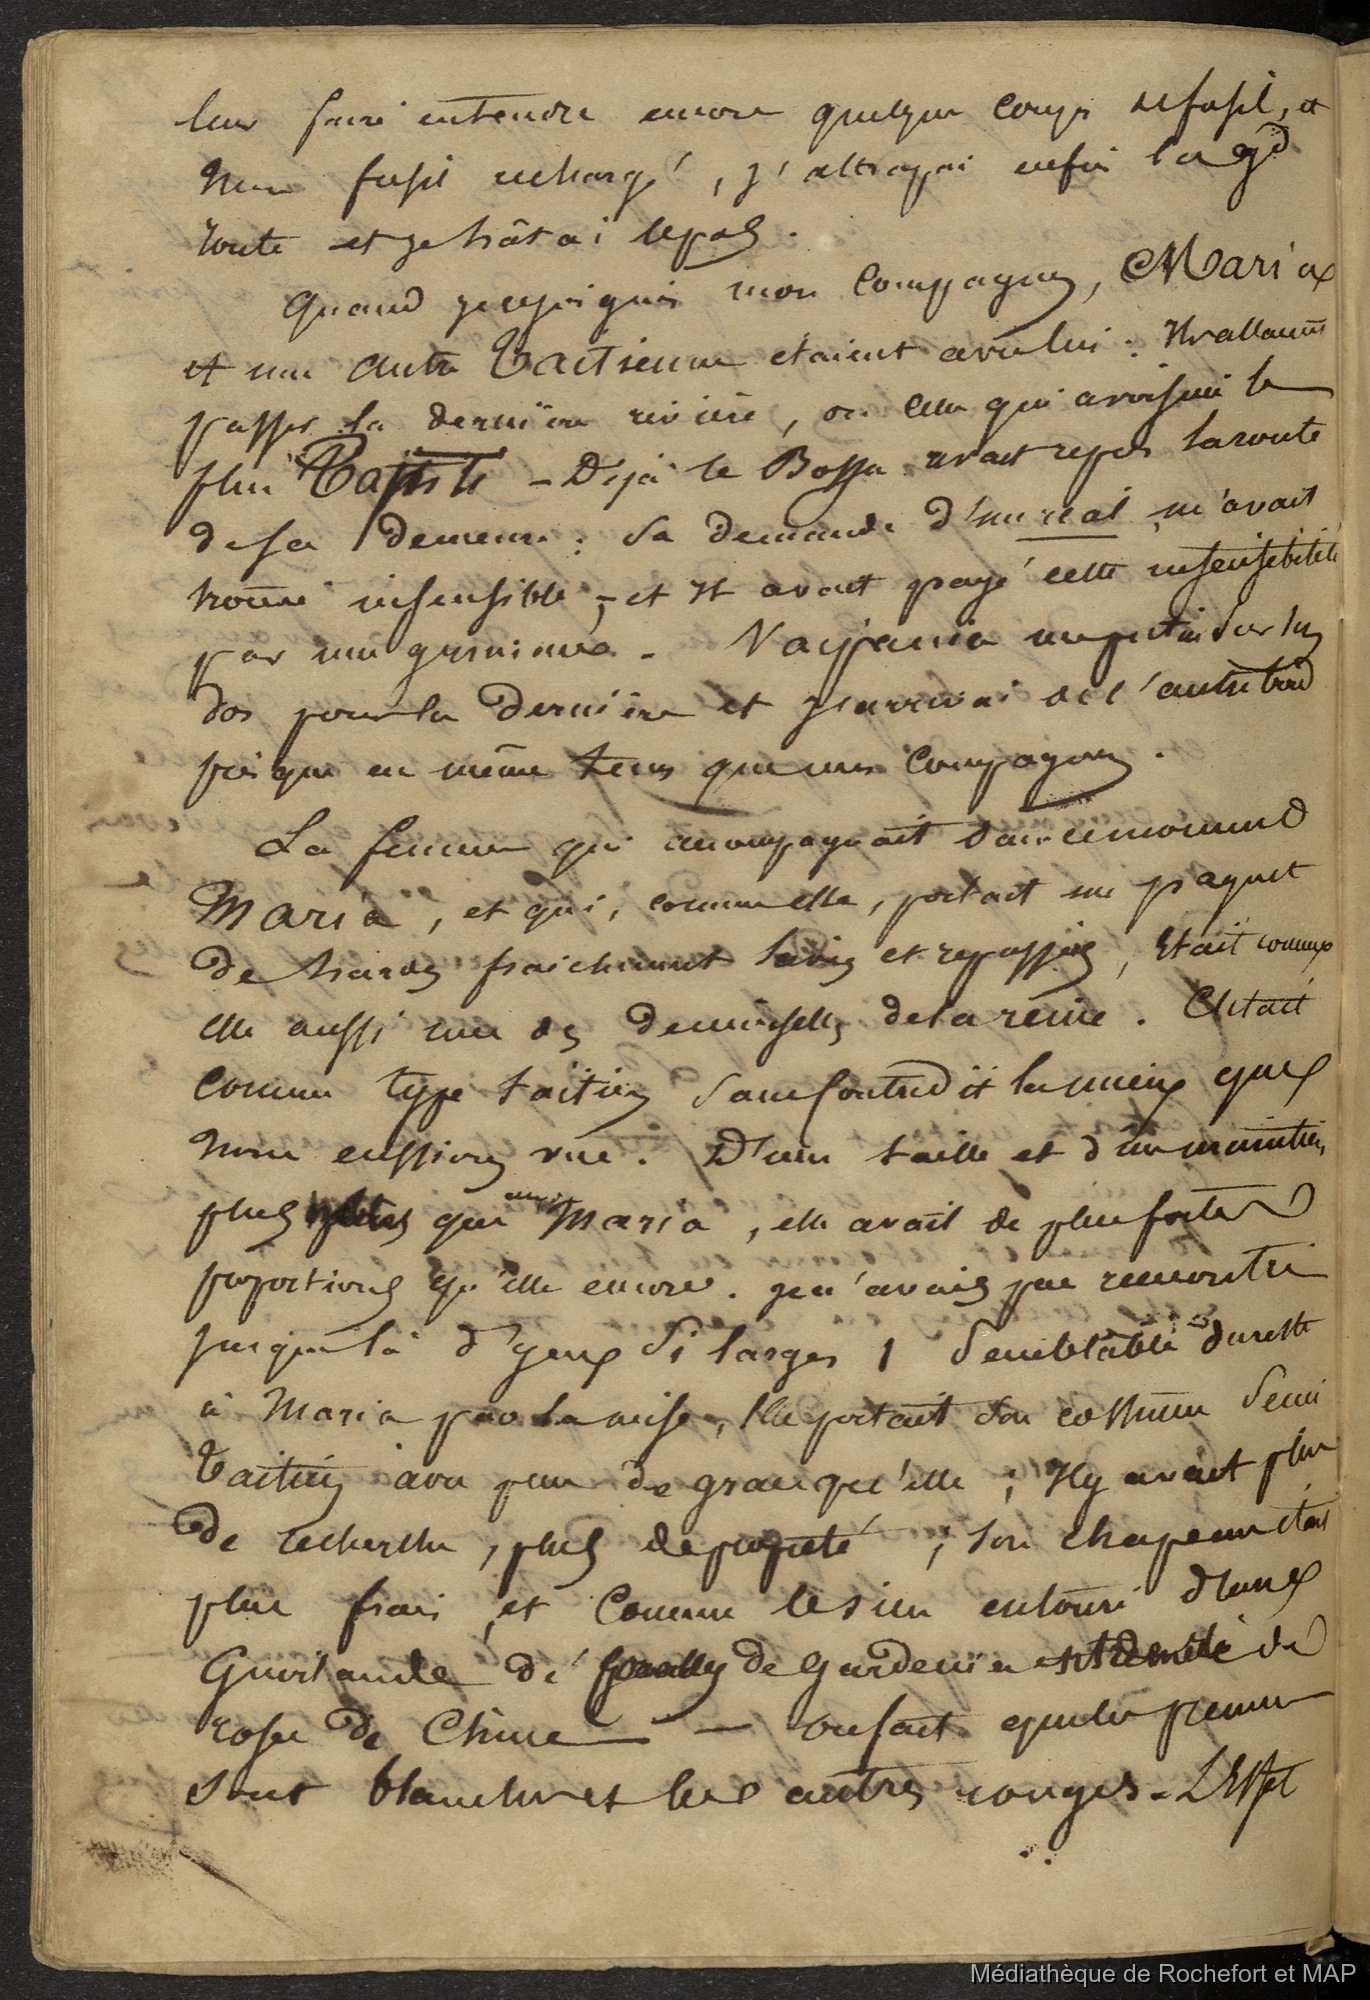 leur faire entendre encore quelques coups de fusil, et
mon fusil rechargé, j'attrapai enfin la gde
route et je hâtai le pas.
Quand je rejoignis mon compagnon, Maria
et une autre Taïtienne étaient avec lui : Ils allaient
passer la dernière rivière, ou celle qui avoisine le
plus - Déjà le Bossu avait repris la route
de sa demeure : Sa demande d'un real m'avait
trouvé insensible, - et il avait payé cette insensibilité
par une grimace. me prit sur son
dos pour la dernière et j'arrivai de l'autre bord
presque en même tems que mes compagnons.
La femme qui accompagnait dans ce moment
Maria, et qui, comme elle, portait un paquet
de hardes fraichement lavées et repassées, était comme
elle aussi une des demoiselles de la reine. C'était
comme type taïtien sans contredit la mieux que
nous eussions vue. D'une taille et d'un maintien
plus que Maria, elle avait de plus fortes
proportions qu'elle encore. je n'avais pas rencontré
jusque là d'yeux si larges ! Semblable du reste
à Maria par la mise, Elle portait son costume demi
Taïtien avec plus de grace qu'elle ; Il y avait plus
de recherche, plus de propreté ; son chapeau était
plus frais, et comme le sien entouré d'une
Guirlande de de Gardenia et de
roses de Chine — on sait que les premiers
sont blanches et les autres rouges. L'Effet
Médiathèque de Rochefort et MAP